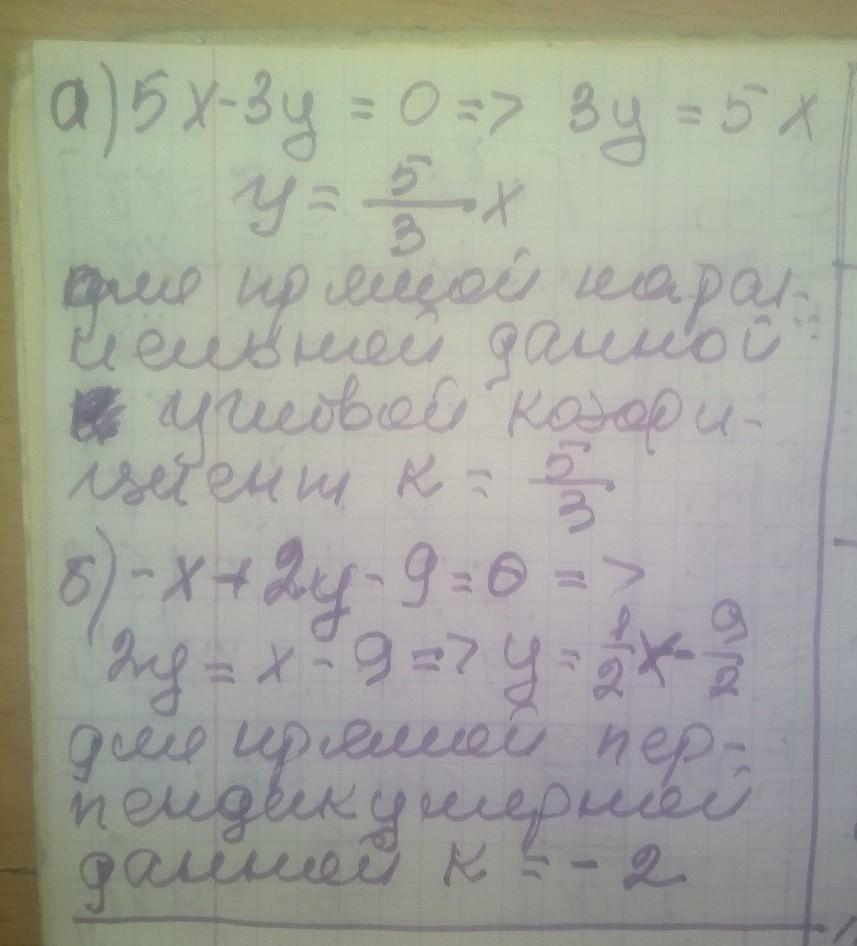 а) 5x - 3y = 0 => 3y = 5x
y = 5/3 x
для прямой парал-
лельной данной
угловой коэфи-
циент к = 5/3
б) -x + 2y - 9 = 0 =>
2y = x - 9 => y = 1/2 x - 9/2
для прямой пер-
пендикулярной
данной к = -2